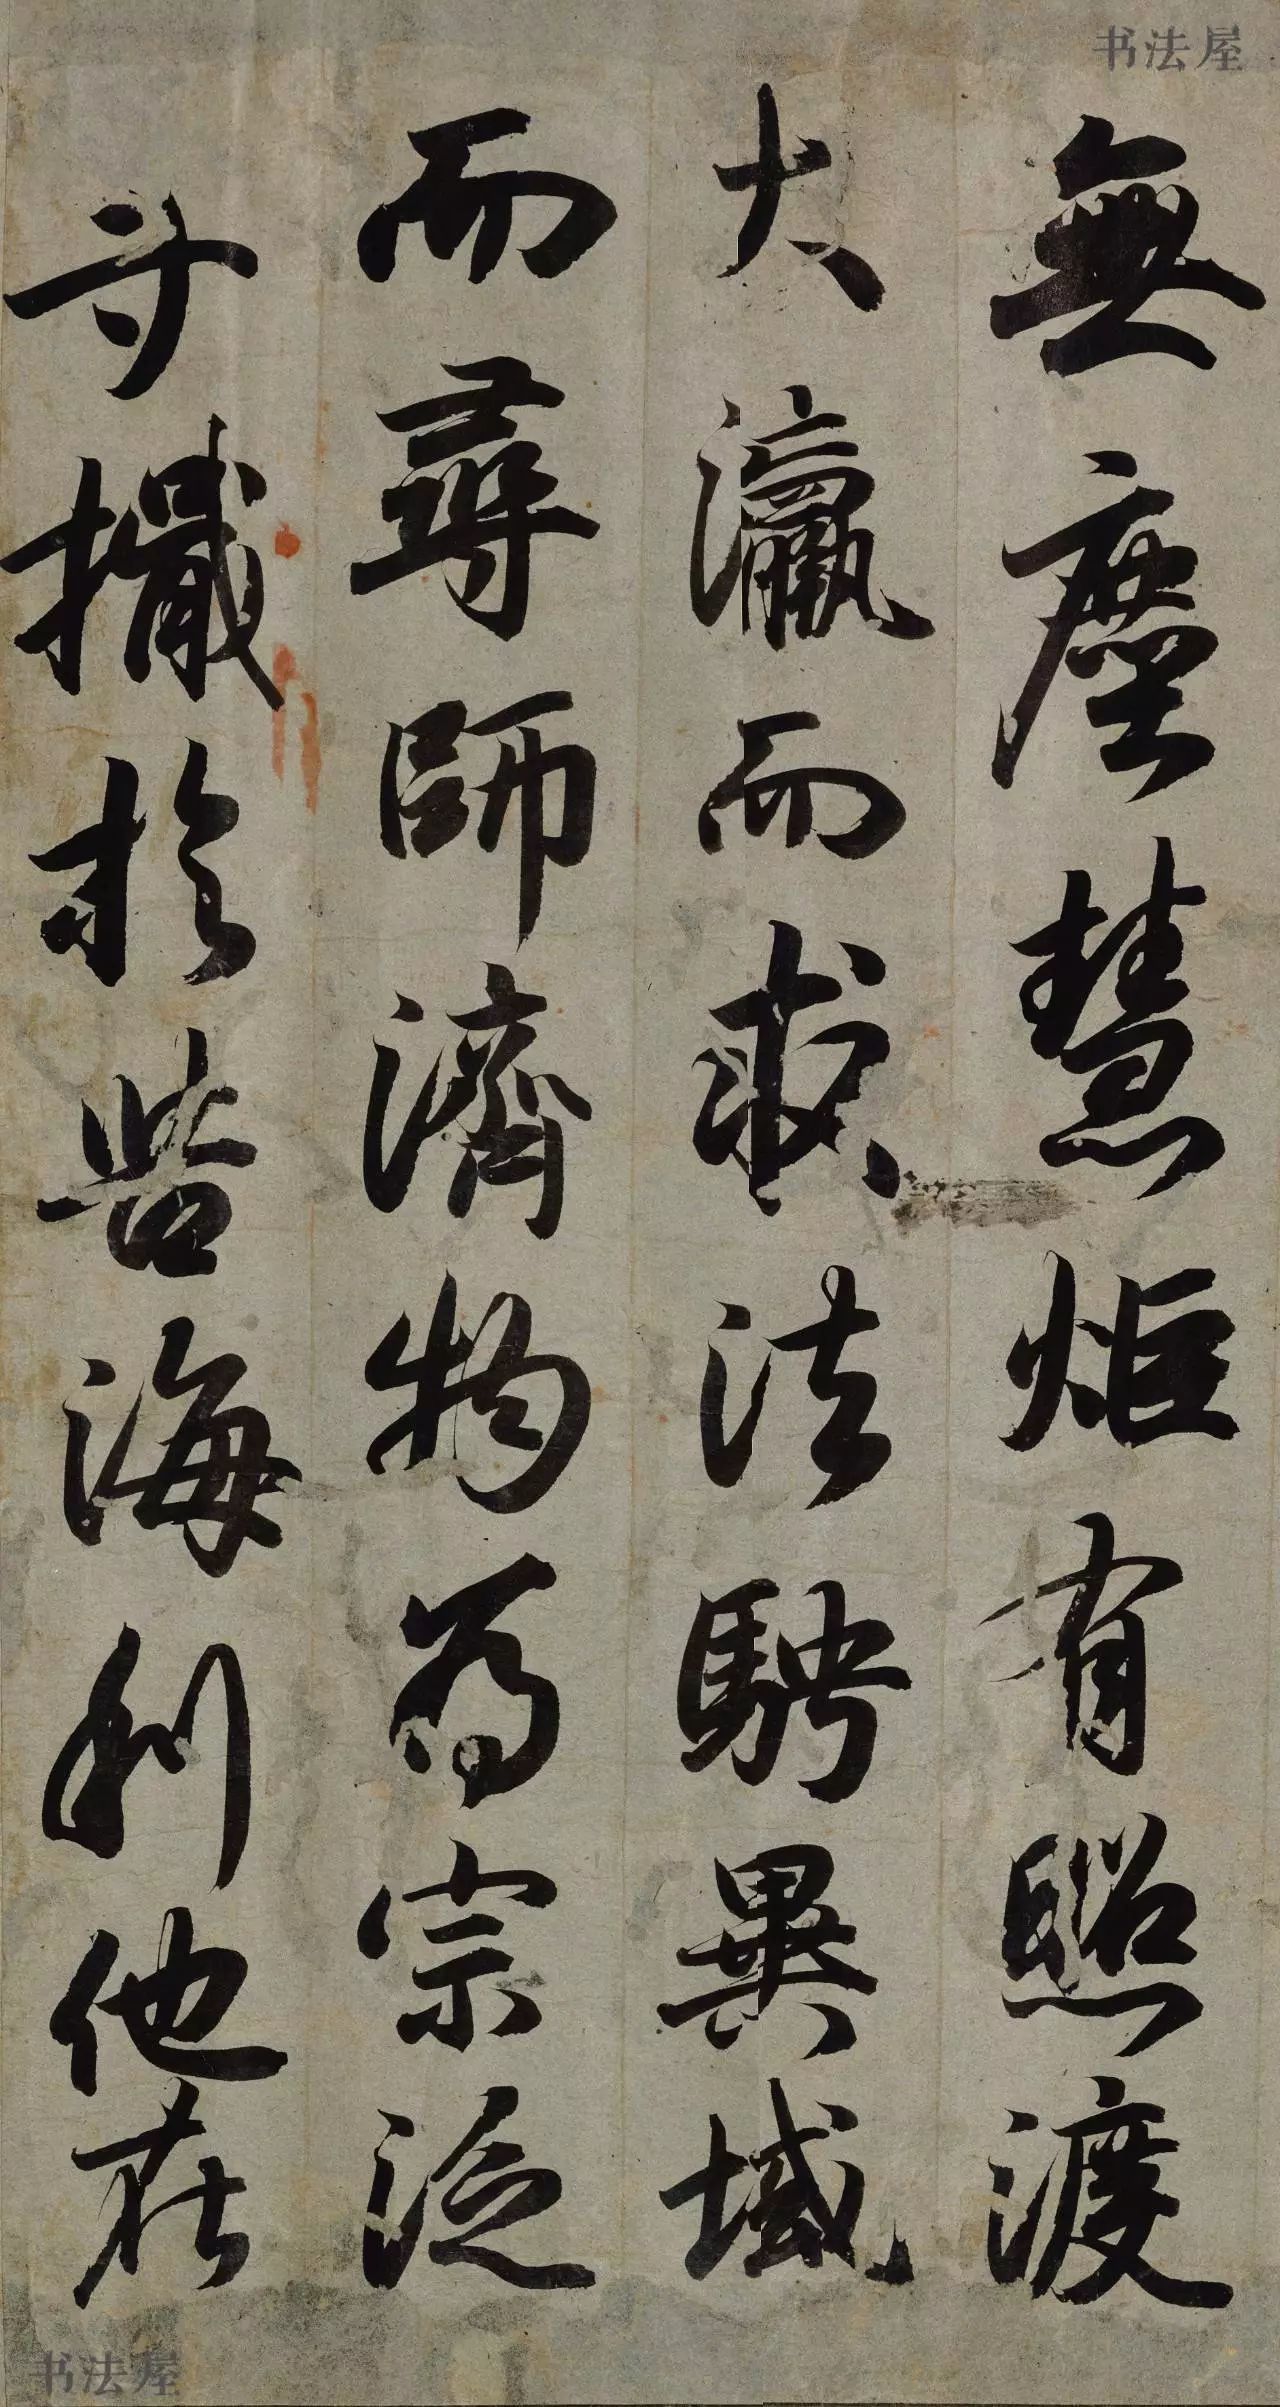 书法屋
無塵慧炬有照渡
大瀛而求法騁異域
而尋師濟物為宗泛
舟檝於苦海利他在
书法屋